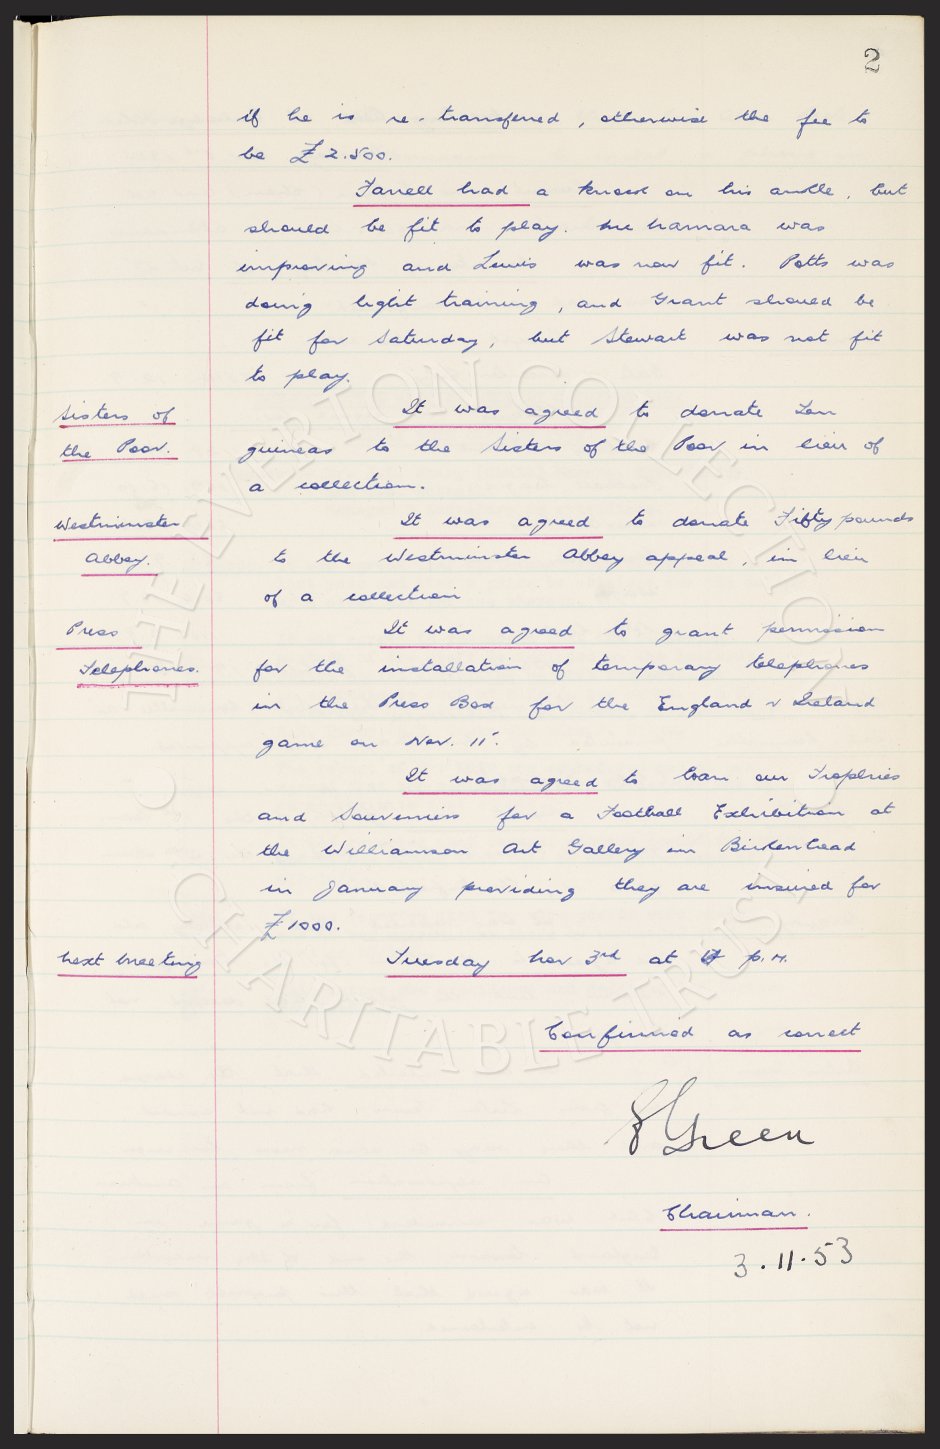 2
if he is re-transferred, otherwise the fee to
be £2.500.
Farrell had a knock on his ankle, but
should be fit to play. McNamara was
improving and Lewis was now fit. Potts was
doing light training, and Grant should be
fit for Saturday, but Stewart was not fit
to play.
Sisters of
the Poor.
It was agreed to donate Ten
guineas to the Sisters of the Poor in lieu of
a collection.
Westminster
Abbey.
It was agreed to donate Fifty pounds
to the Westminster Abbey appeal, in lieu
of a collection
Press
Telephones.
It was agreed to grant permission
for the installation of temporary telephones
in the Press Box for the England v Ireland
game on Nov. 11.
It was agreed to loan our Trophies
and Souvenirs for a Football Exhibition at
the Williamson Art Gallery in Birkenhead
in January providing they are insured for
£1000.
Next Meeting
Tuesday Nov 3rd at p.m.
Confirmed as correct
Green
Chairman.
3.11.53
THE EVERTON COLLECTION
CHARITABLE TRUST